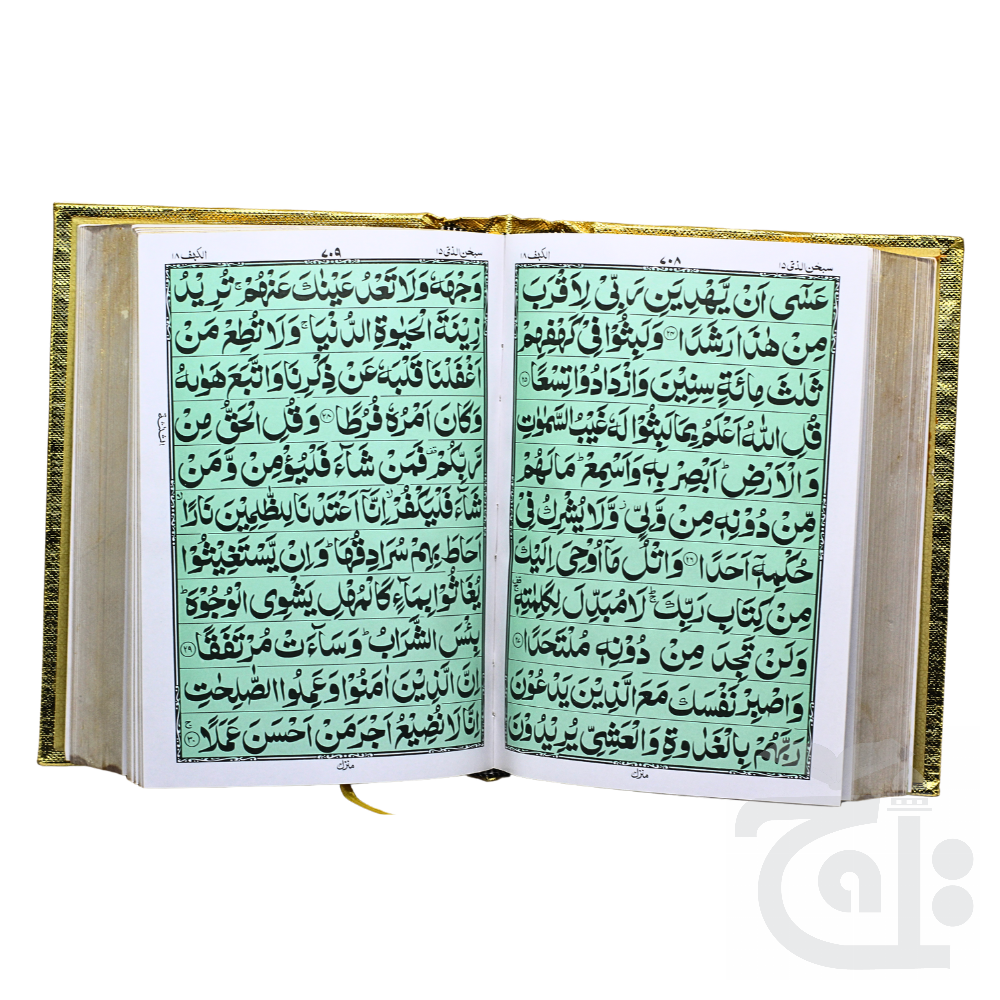 سبحن الذی ۱۵
۷۰۸
الکهف ۱۸
عَسٰٓى اَنْ يَّهْدِيَنِ رَبِّىْ لِاَقْرَبَ
مِنْ هٰذَا رَشَدًا ﴿۲۴﴾ وَلَبِثُوْا فِىْ كَهْفِهِمْ
ثَلٰثَ مِائَةٍ سِنِيْنَ وَازْدَادُوْا تِسْعًا ﴿۲۵﴾
قُلِ اللّٰهُ اَعْلَمُ بِمَا لَبِثُوْا لَهٗ غَيْبُ السَّمٰوٰتِ
وَالْاَرْضِ ؕ اَبْصِرْ بِهٖ وَاَسْمِعْ ؕ مَا لَهُمْ
مِّنْ دُوْنِهٖ مِنْ وَّلِىٍّ ز وَّلَا يُشْرِكُ فِىْ
حُكْمِهٖۤ اَحَدًا ﴿۲۶﴾ وَاتْلُ مَاۤ اُوْحِىَ اِلَيْكَ
مِنْ كِتَابِ رَبِّكَ ؕۚ لَا مُبَدِّلَ لِكَلِمٰتِهٖ
وَلَنْ تَجِدَ مِنْ دُوْنِهٖ مُلْتَحَدًا ﴿۲۷﴾
وَاصْبِرْ نَفْسَكَ مَعَ الَّذِيْنَ يَدْعُوْنَ
رَبَّهُمْ بِالْغَدٰوةِ وَالْعَشِىِّ يُرِيْدُوْنَ
منزل
سبحن الذی ۱۵
۷۰۹
الکهف ۱۸
وَجْهَهٗ وَلَا تَعْدُ عَيْنٰكَ عَنْهُمْ ۚ تُرِيْدُ
زِيْنَةَ الْحَيٰوةِ الدُّنْيَا ۚ وَلَا تُطِعْ مَنْ
اَغْفَلْنَا قَلْبَهٗ عَنْ ذِكْرِنَا وَاتَّبَعَ هَوٰٮهُ
وَكَانَ اَمْرُهٗ فُرُطًا ﴿۲۸﴾ وَقُلِ الْحَقُّ مِنْ
رَّبِّكُمْ فَمَنْ شَآءَ فَلْيُؤْمِنْ وَّمَنْ
شَآءَ فَلْيَكْفُرْ ۙ اِنَّاۤ اَعْتَدْنَا لِلظّٰلِمِيْنَ نَارًا ۙ
اَحَاطَ بِهِمْ سُرَادِقُهَا ؕ وَاِنْ يَّسْتَغِيْثُوْا
يُغَاثُوْا بِمَآءٍ كَالْمُهْلِ يَشْوِى الْوُجُوْهَ ؕ
بِئْسَ الشَّرَابُ ؕ وَسَآءَتْ مُرْتَفَقًا ﴿۲۹﴾
اِنَّ الَّذِيْنَ اٰمَنُوْا وَعَمِلُوا الصّٰلِحٰتِ
اِنَّا لَا نُضِيْعُ اَجْرَ مَنْ اَحْسَنَ عَمَلًا ۚ ﴿۳۰﴾
منزل
تاج